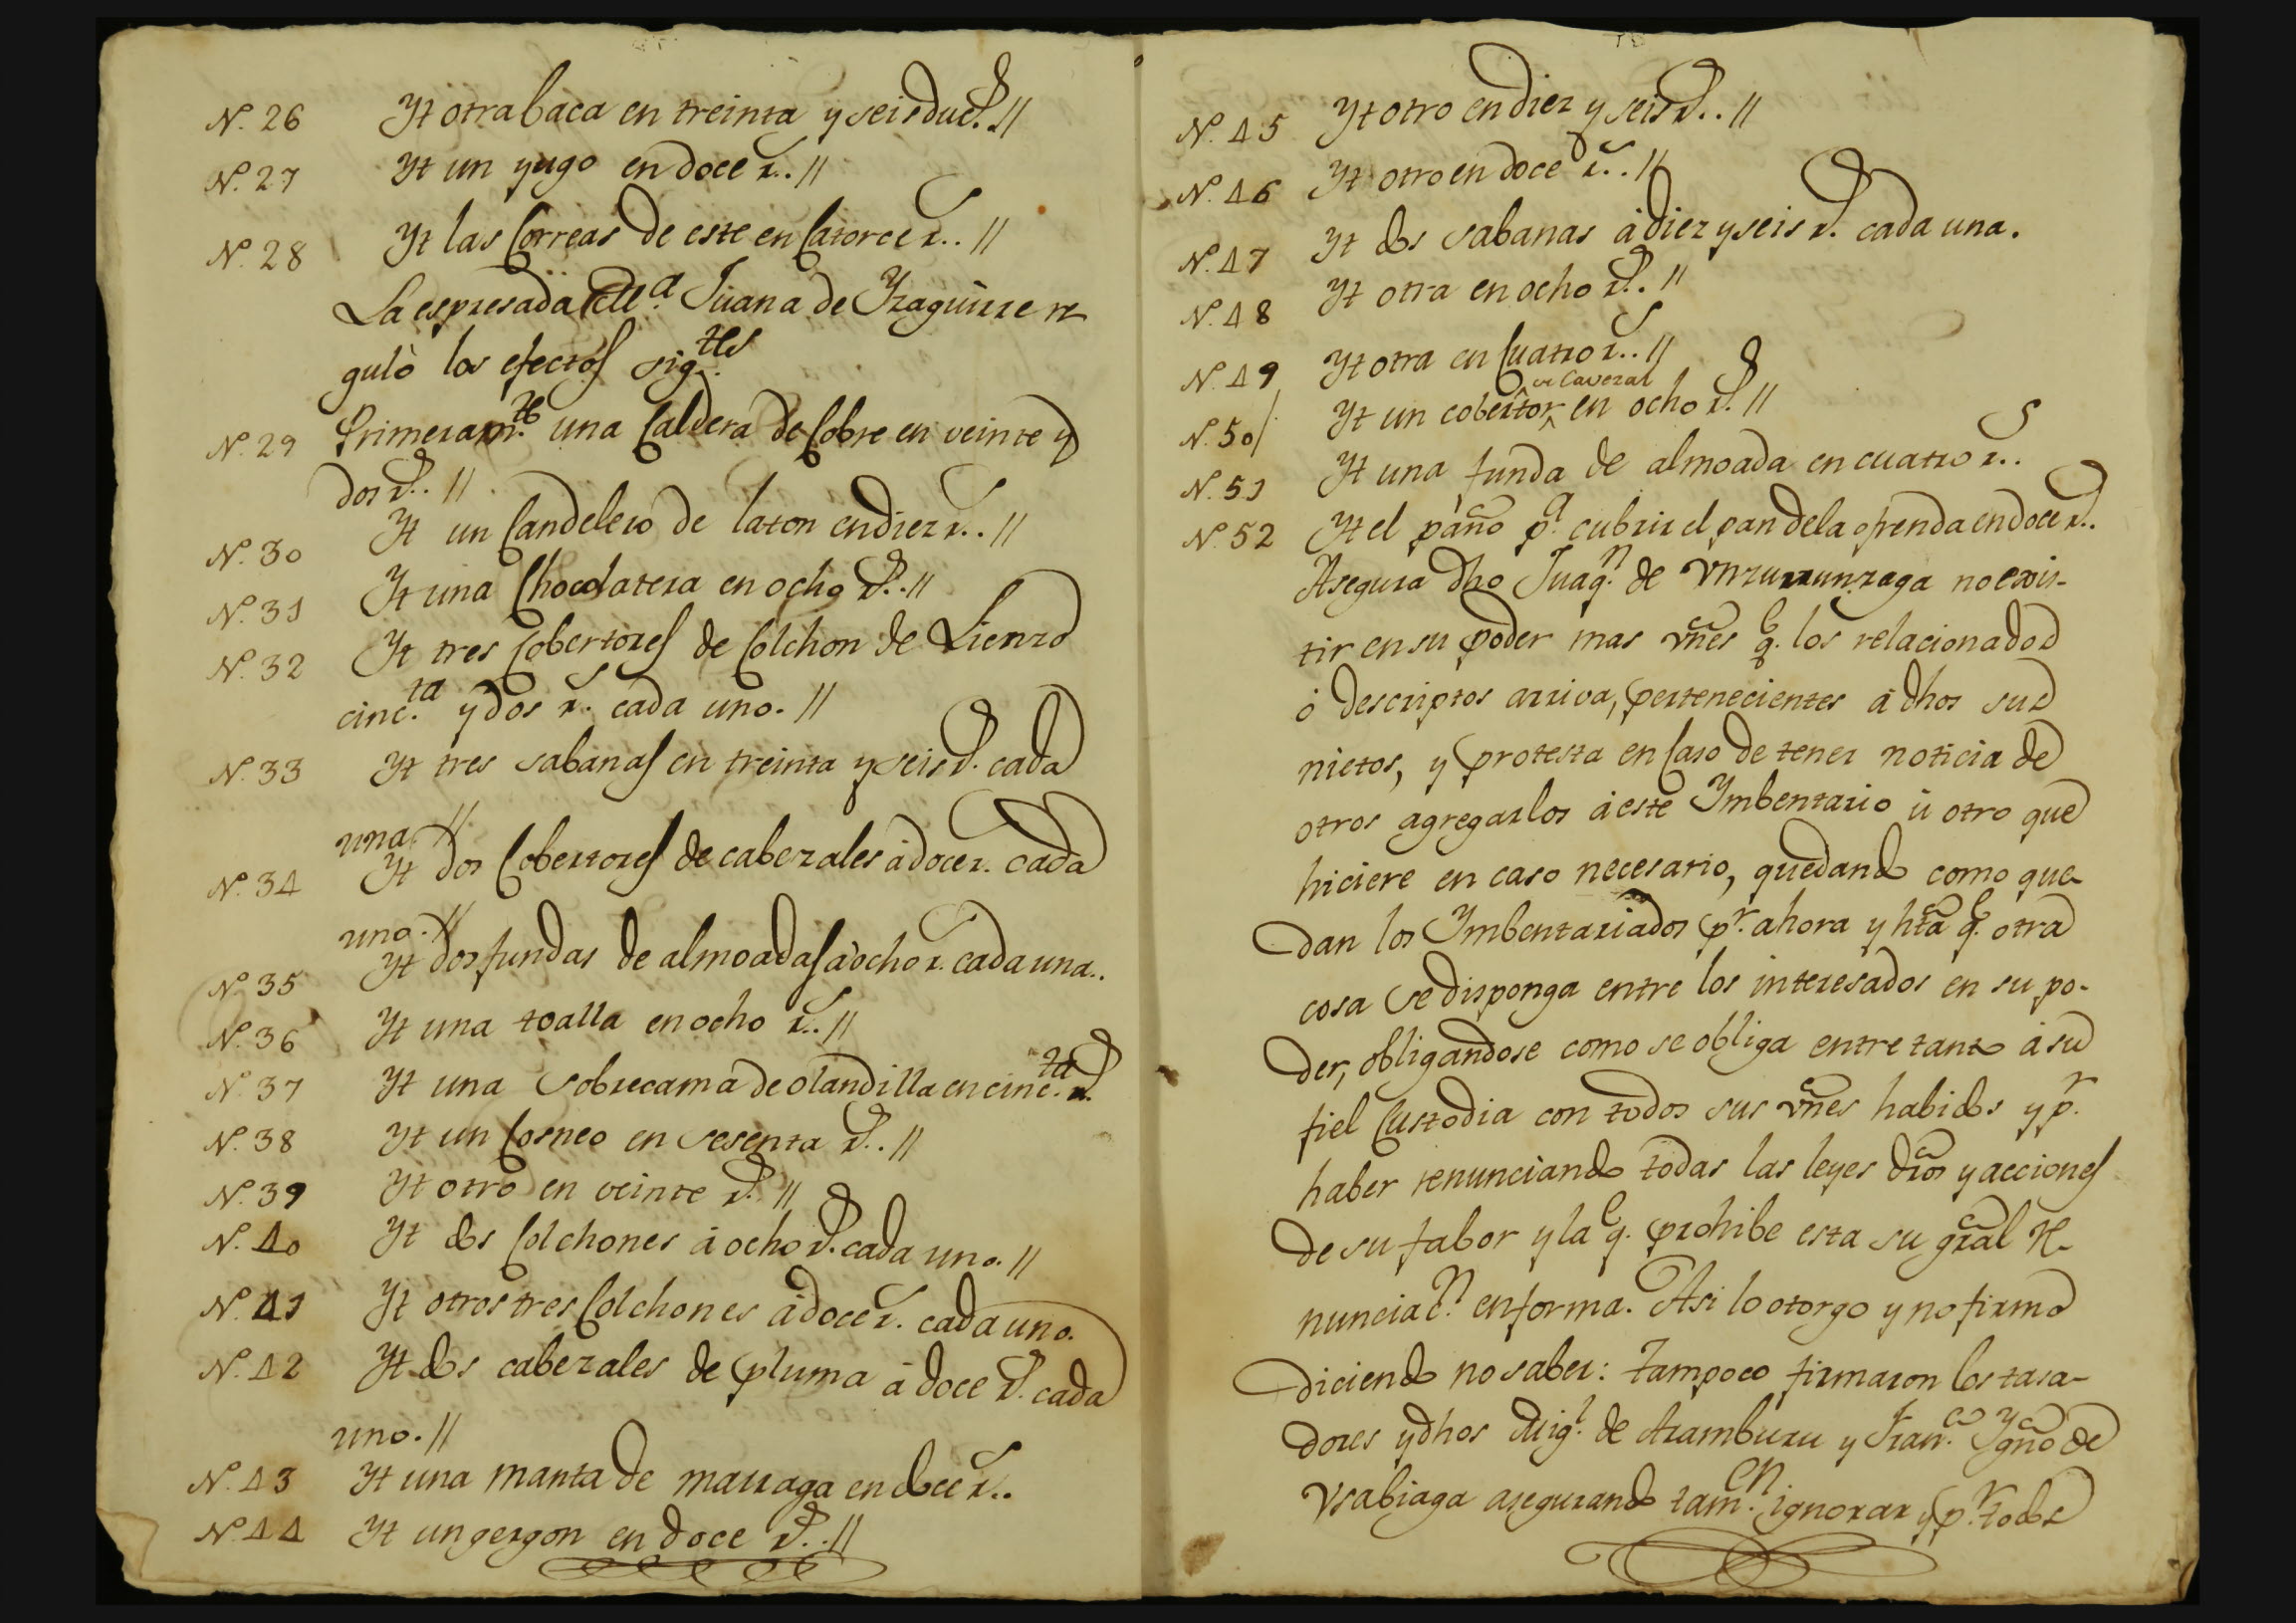 N. 26 Yt otra baca en treinta y seis duc.s //
N. 27 Yt un yugo en doce r.s //
N. 28 Yt las Correas de este en Catorce r.s //
La espresada Juana de Yzaguirre re
gulò los efectos sig.tes
N. 29 Primeram.te una Caldera de Cobre en veinte y
dos r.s //
N. 30 Yt un Candelero de laton en diez r.s //
N. 31 Yt una Chocolatera en ocho r.s //
N. 32 Yt tres Cobertores de Colchon de Lienzo
cinc.ta y dos r.s cada uno. //
N. 33 Yt tres sabanas en treinta y seis r.s cada
una //
N. 34 Yt dos Cobertores de cabezales à doce r.s cada
uno. //
N. 35 Yt dos fundas de almoadas à ocho r.s cada una..
N. 36 Yt una toalla en ocho r.s //
N. 37 Yt una sobrecama de olandilla en cinc.ta r.s
N. 38 Yt un Cosneo en sesenta r.s //
N. 39 Yt otro en veinte r.s //
N. 40 Yt dos Colchones à ocho r.s cada uno. //
N. 41 Yt otros tres Colchones à doce r.s cada uno.
N. 42 Yt dos cabezales de pluma à doce r.s cada
uno. //
N. 43 Yt una manta de marraga en doce r.s
N. 44 Yt un gergon en doce r.s //
N. 45 Yt otro en diez y seis r.s //
N. 46 Yt otro en doce r.s //
N. 47 Yt dos sabanas à diez y seis r.s cada una.
N. 48 Yt otra en ocho r.s //
N. 49 Yt otra en Cuatro r.s //
de Cavezal
N. 50 / Yt un cobertor en ocho r.s //
N. 51 Yt una funda de almoada en cuatro r.s
N. 52 Yt el paño p.a cubrir el pan de la ofrenda en doce r.s
Asegura dho Juaq.n de Vnzurrunzaga no exis-
tir en su poder mas vñes q.e los relacionados
ò descriptos arriva, pertenecientes à dhos sus
nietos, y protesta en Caso de tener noticia de
otros agregarlos à este Ymbentario ù otro que
hiciere en caso necesario, quedando como que-
dan los Ymbentariados p.r ahora y hta q.e otra
cosa se disponga entre los interesados en su po-
der, obligandose como se obliga entre tanto à su
fiel Custodia con todos sus vñes habidos y p.r
haber renunciando todas las leyes dros y acciones
de su fabor y la q.e prohibe esta su gral re-
nunciac.n en forma. Asi lo otorgo y no firmo
diciendo no saber: tampoco firmaron los tasa-
dores y dhos Mig.l de Aramburu y Fran.co Ygño de
Vsabiaga asegurando tam.en ignorar y p.r todos